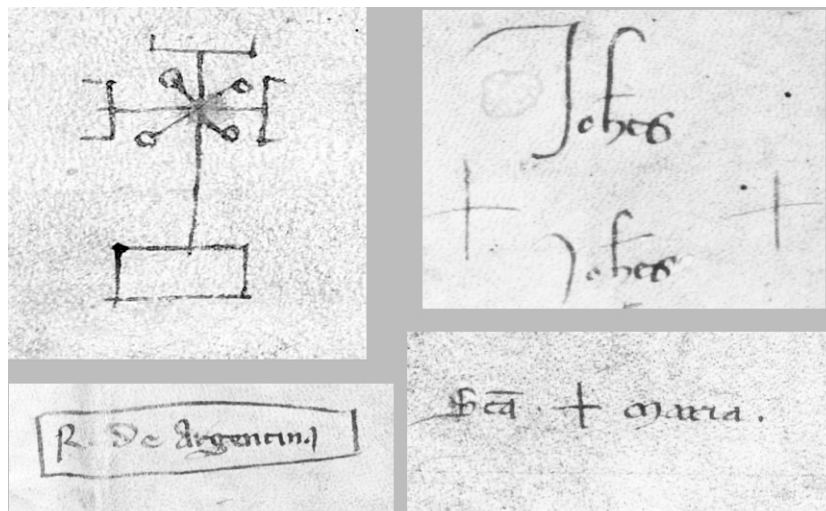 Johes
+ +
Johes
R. De Argentin̄
Sc̄a · + maria .